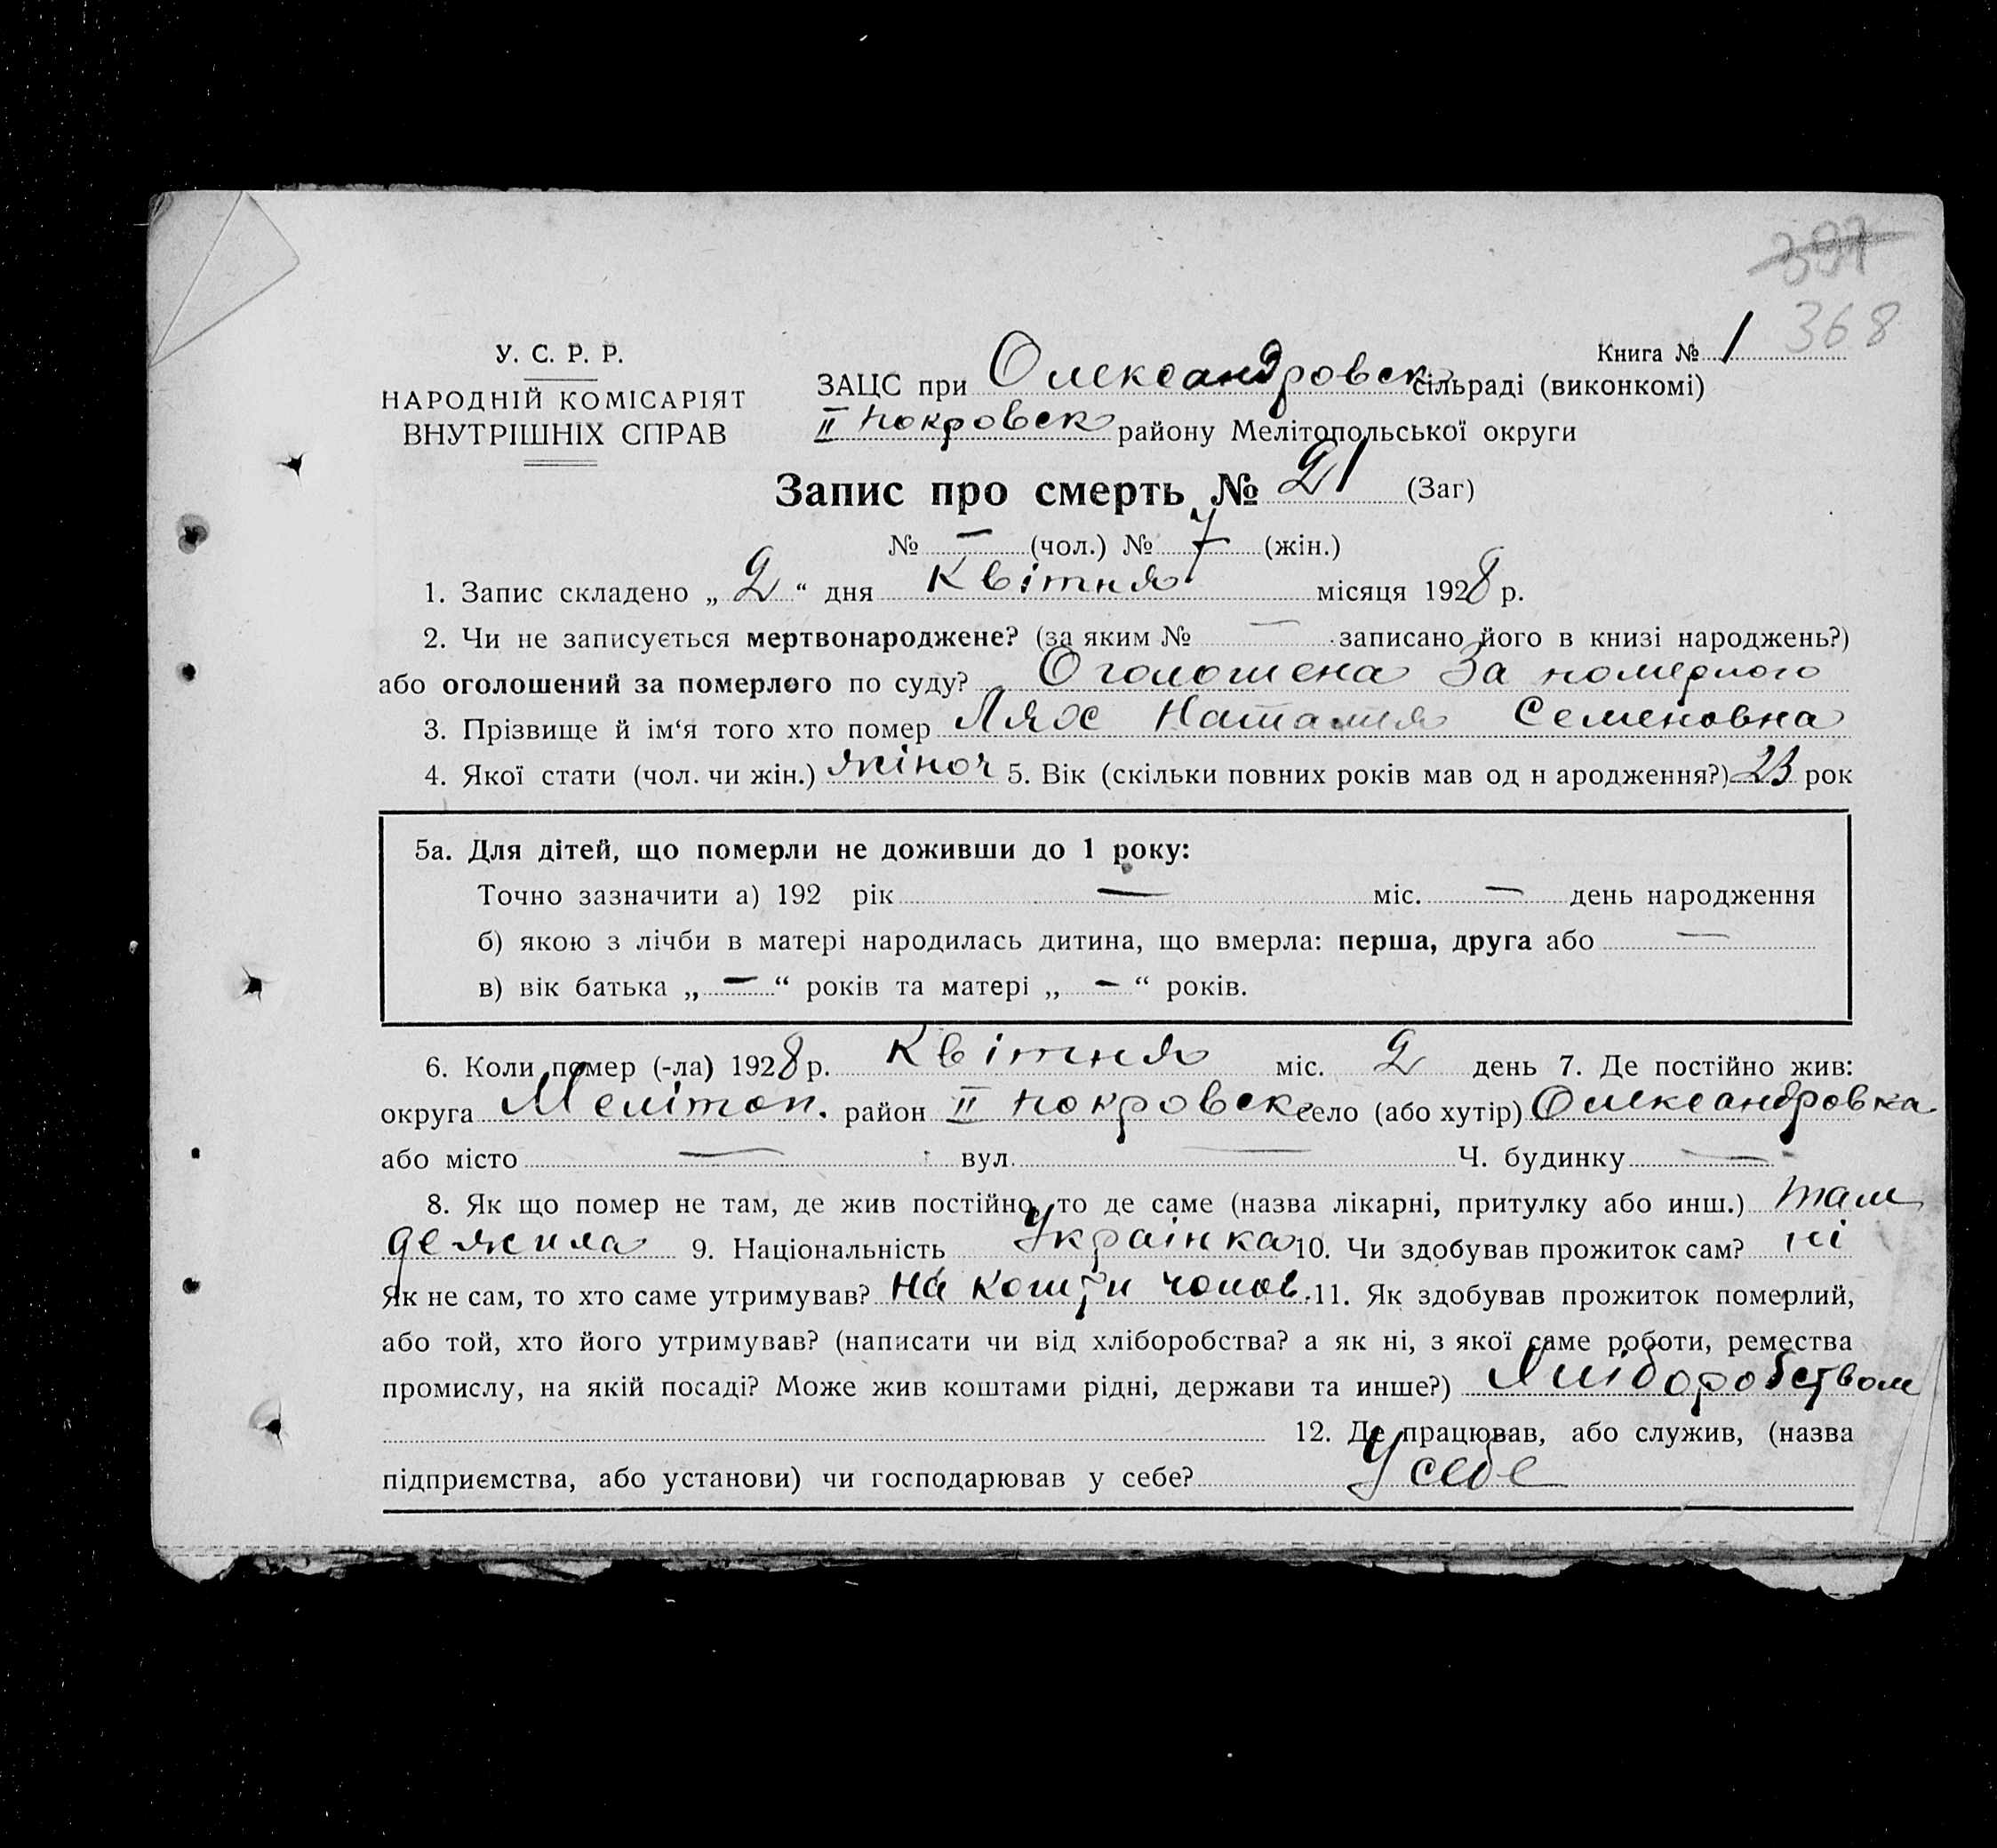 397
368
У. С. Р. Р.
НАРОДНІЙ КОМІСАРІЯТ
ВНУТРІШНІХ СПРАВ
Книга № 1
ЗАЦС при Олександровск сільраді (виконкомі)
II покровск району Мелітопольської округи
Запис про смерть № 21 (Заг)
№ — (чол.) № 7 (жін.)
1. Запис складено „ 2 “ дня Квітня місяця 1928 р.
2. Чи не записується мертвонароджене? (за яким № — записано його в книзі народжень?)
або оголошений за померлого по суду? Оголошена За померлого
3. Прізвище й ім‘я того хто помер Лях Наталия Семеновна
4. Якої стати (чол. чи жін.) жіноч 5. Вік (скільки повних років мав од н ародження?) 23 рок
5а. Для дітей, що померли не доживши до 1 року:
Точно зазначити а) 192 рік — міс. — день народження
б) якою з лічби в матері народилась дитина, що вмерла: перша, друга або —
в) вік батька „ — “ років та матері „ — “ років.
6. Коли помер (-ла) 1928 р. Квітня міс. 2 день 7. Де постійно жив:
округа Мелітоп. район II покровск село (або хутір) Олександровка
або місто — вул. — Ч. будинку —
8. Як що помер не там, де жив постійно, то де саме (назва лікарні, притулку або инш.) там
де жила 9. Національність Українка 10. Чи здобував прожиток сам? ні
Як не сам, то хто саме утримував? на кошти чолов. 11. Як здобував прожиток померлий,
або той, хто його утримував? (написати чи від хліборобства? а як ні, з якої саме роботи, ремества
промислу, на якій посаді? Може жив коштами рідні, держави та инше?) Хліборобством
12. Де працював, або служив, (назва
підприємства, або установи) чи господарював у себе? У себе